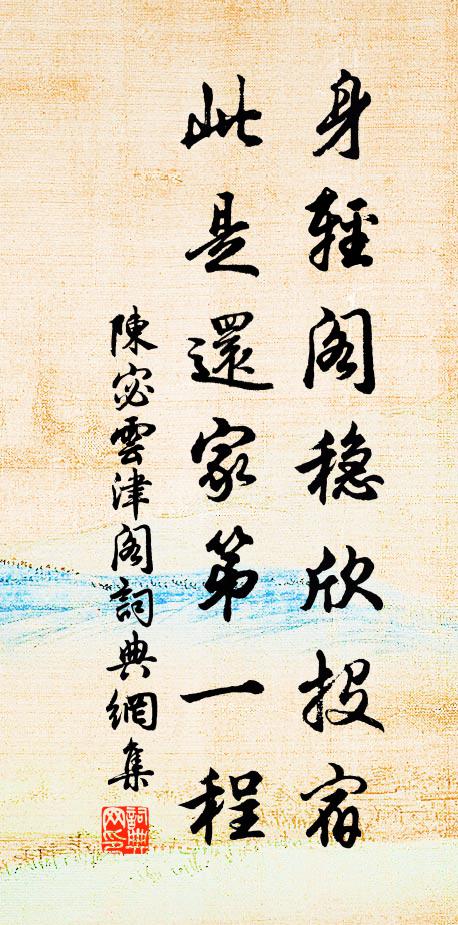 身輕阁穩欣投宿
此是還家第一程
陳宓雲津阁詞典網集
詞典网印